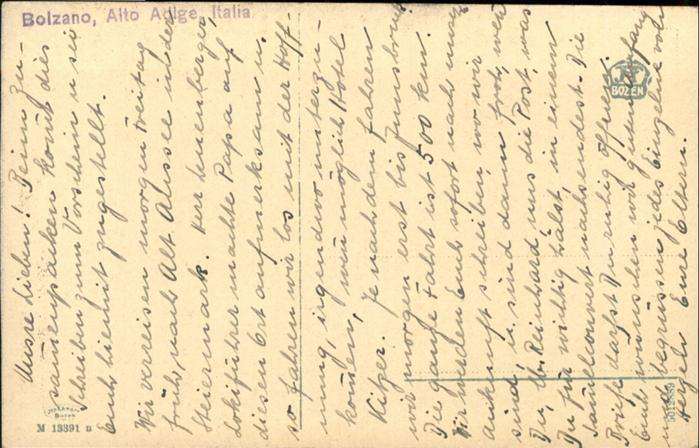 Bolzano, Alto Adige, Italia
Unsre Lieben! Beim Zu-
sammenpacken kommt dies
Schreiben zum Vorschein u sei
Euch hiemit zugestellt.
Wir verreisen morgen Freitag
früh, nach Alt Aussee in der
Steiermark. Herr
machte Papa auf
diesen Ort aufmerksam u.
so fahren wir los mit der Hoff-
nung, irgendwo unterzu-
kommen, wenn möglich Hotel
Kitzer. Je nachdem fahren
wir morgen erst bis Innsbruck.
Die ganze Fahrt ist 500 km.
Wir werden Euch sofort nach unsrer
Ankunft schreiben, wo wir
sind u. sind dann froh, wenn
Du, lb. Reinhard, uns die Post, was
Du für wichtig hälst, in einem
nachsendest. Die
Briefe darfst Du ruhig öffnen.
Euch wünschen
und begrüssen jedes Einzelne von
Eure Eltern.
BOZEN
M 13391